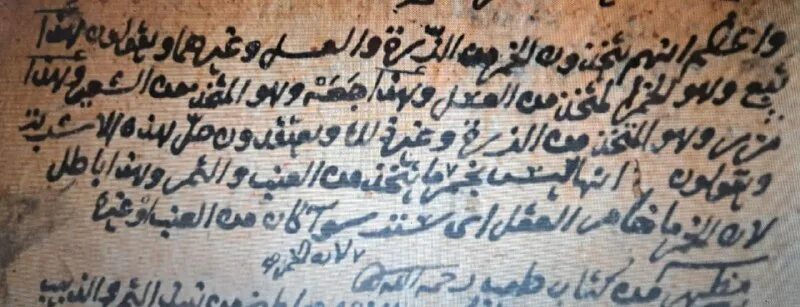 واعظم انهم يتخذون الخمر من الذرة والعسل وغيرهما ويقولون لهذا
تبع وهو الخمر المتخذ من العسل ولهذا جعة وهو المتخذ من الشعير ولهذا
مزر وهو المتخذ من الذرة وغيره ويعتقدون حل لهذه الاشربة
ويقولون انها ليس بخمر ما يتخذ من العنب والتمر وهذا باطل
لان الخمر ما خامر العقل اى ستر سوآ كان من العنب او غيره
لان الخمر
من كتاب رحمه الله من التمر والزبيب